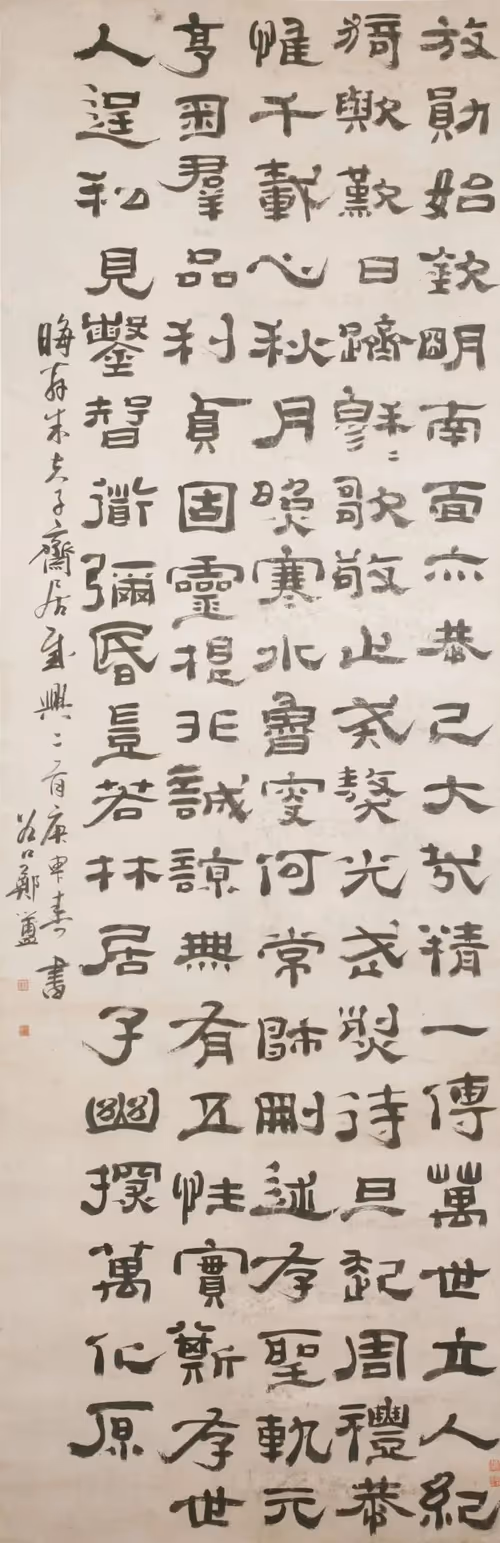 放勛始欽明南面亦恭己大哉精一傳萬世立人紀
猗歟歎日躋穆〻歌敬止戒獒光武烈待旦起周禮恭
惟千載心秋月照寒水魯叟何常師刪述存聖軌元
亨播羣品利貞固靈根非誠諒無有五性實斯存世
人逞私見鑿智道彌昏豈若林居子幽探萬化原
晦菴朱夫子齋居感興二首庚申春書
谷口鄭簠